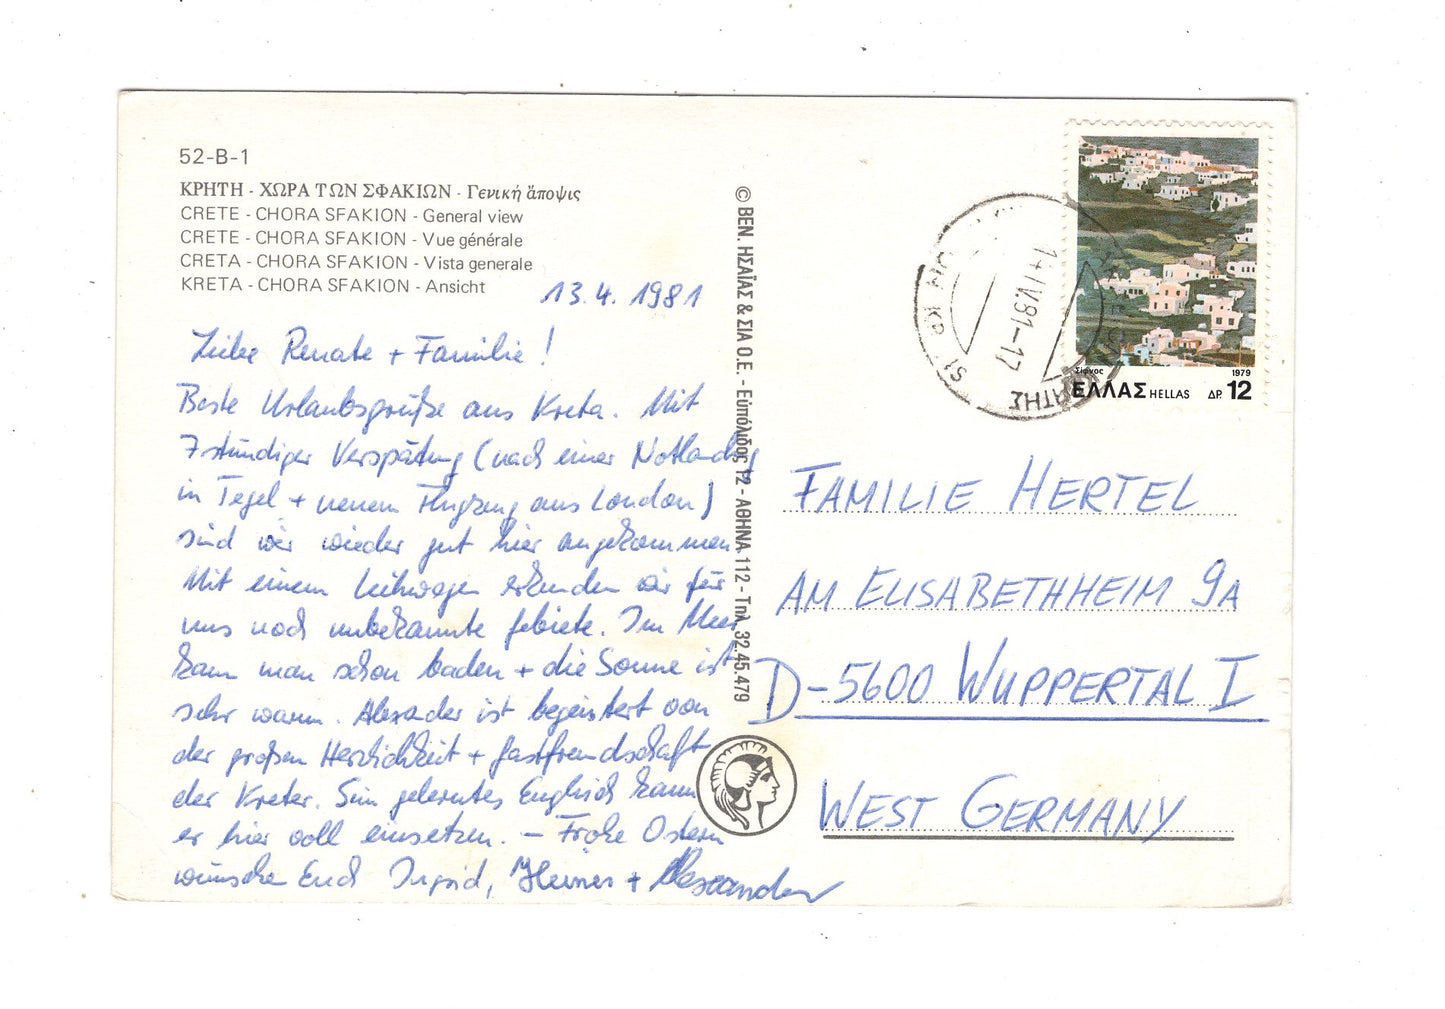 52-B-1
ΚΡΗΤΗ - ΧΩΡΑ ΤΩΝ ΣΦΑΚΙΩΝ - Γενική ἄποψις
CRETE - CHORA SFAKION - General view
CRETE - CHORA SFAKION - Vue générale
CRETA - CHORA SFAKION - Vista generale
KRETA - CHORA SFAKION - Ansicht
13.4.1981
Liebe Renate + Familie!
Beste Urlaubsgrüße aus Kreta. Mit
7stündiger Verspätung (nach einer Notlandg
in Tegel + neuem Flugzeug aus London)
sind wir wieder gut hier angekommen
Mit einem Leihwagen erkunden wir für
uns noch unbekannte Gebiete. Im Meer
kann man schon baden + die Sonne ist
sehr warm. Alexader ist begeistert von
der großen Herzlichkeit + Gastfreundschaft
der Kreter. Sein gelerntes Englisch kann
er hier voll einsetzen. - Frohe Ostern
wünschen Euch Ingrid, Heiner + Alexander
© ΒΕΝ. ΗΣΑΪΑΣ & ΣΙΑ Ο.Ε. - Εὐπόλιδος 12 - ΑΘΗΝΑ 112 - Τηλ. 32.45.479
14 IV.81-17
Σίφνος 1979
ΕΛΛΑΣ HELLAS ΔΡ. 12
FAMILIE HERTEL
AM ELISABETHHEIM 9A
D-5600 WUPPERTAL I
WEST GERMANY